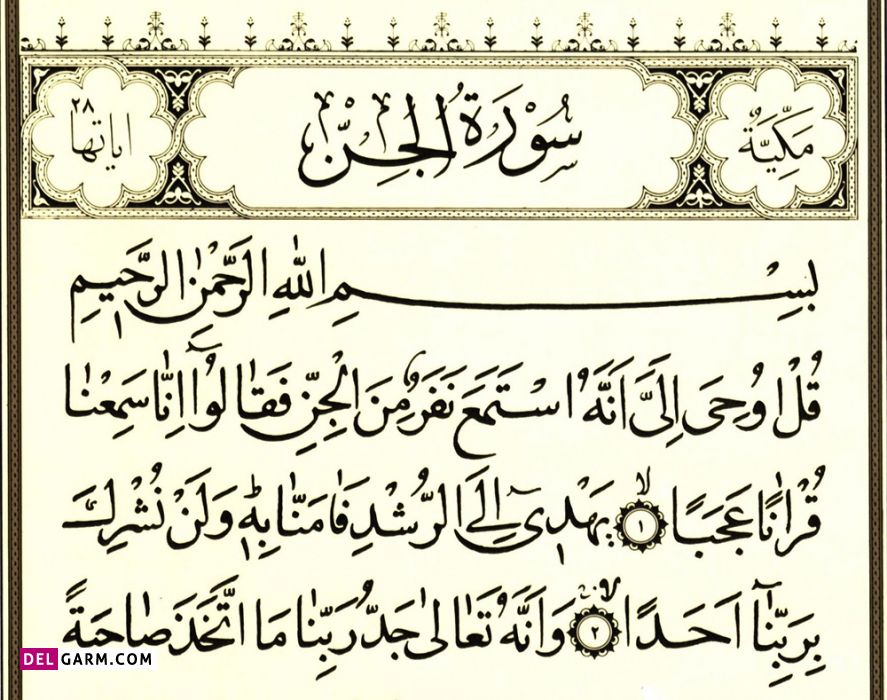 مَكِّيَّةٌ سُوْرَةُ الْجِنِّ اٰيَاتُهَا ٢٨
بِسْمِ اللّٰهِ الرَّحْمٰنِ الرَّحٖيمِ
قُلْ اُو۫حِيَ اِلَيَّ اَنَّهُ اسْتَمَعَ نَفَرٌ مِنَ الْجِنِّ فَقَالُٓوا اِنَّا سَمِعْنَا
قُرْاٰنًا عَجَبًاۙ ١ يَهْدٖٓي اِلَى الرُّشْدِ فَاٰمَنَّا بِهٖؕ وَلَنْ نُشْرِكَ
بِرَبِّنَٓا اَحَدًاۙ ٢ وَاَنَّهُ تَعَالٰى جَدُّ رَبِّنَا مَا اتَّخَذَ صَاحِبَةً
DELGARM.COM